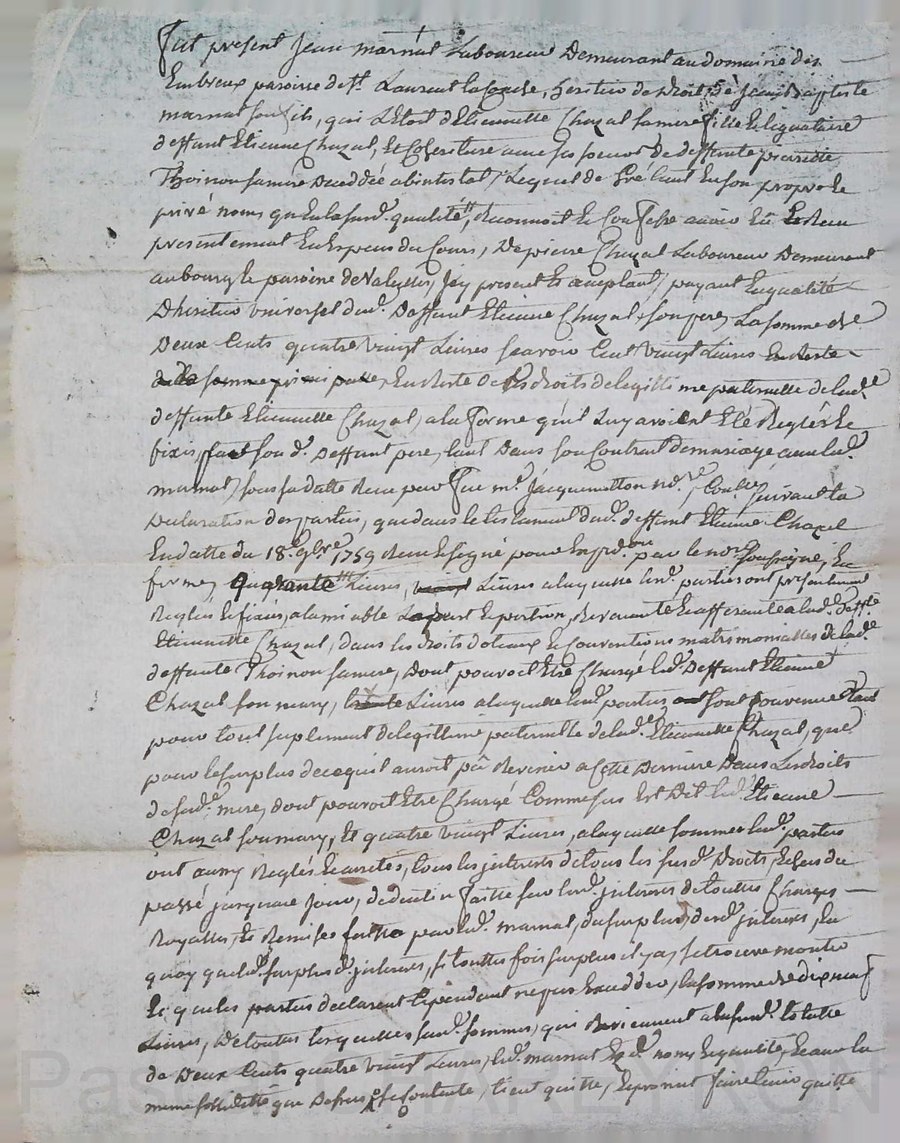 fut present Jean marnat Laboureur Demeurant au domaine des
Embreux paroisse de St. Laurent la Conche, heritier de droit de Jean Baptiste
marnat son fils, qui L'Etoit d'Etiennette Chazal sa mere fille et legataire
deffunt Etienne Chazal, Et Coheritiere avec ses soeurs de deffunte pierrette
Thoinon sa mere Decedée abintestat, Lequel de Gré tant En son propre Et
privé noms qu'En la susd. qualité, Reconnoit Et Confesse avoir Eu Et Receu
presentement En Especes du Cours, De pierre Chazal Laboureur Demeurant
au bourg Et paroisse de Valeilles, Icy present Et acceptant, payant En qualité
D'heritier Universel dud. Deffunt Etienne Chazal son pere, La somme de
Deux Cents quatre vingt Livres scavoir Cent vingt Livres En Reste
En Reste de Ses droits de legitime paternelle de lad.
deffunte Etiennette Chazal, a la forme qu'il Luy avoient Eté Reglés Et
fixés, sond. Deffunt pere, tant Dans son Contrat de mariage avec led.
marnat, sous sa datte Receu par feu me. Jacquemetton nore. suivant la
Declaration des parties, que dans le testament dud. deffunt Etienne Chazal
En datte du 18. 9bre. 1759 Receu Et signé pour Expedon. par le nore. soussigné, En
forme, Quarante Livres, Livres a laquelle lesd. parties ont presentement
Reglés Et fixés, a l'amiable La part Et portion, Revenante Et afferante a lad. deffte.
Etiennette Chazal, dans les droits dotaux Et Conventions matrimonialles de lad.
deffunte Thoinon sa mere, Dont pouvoit Etre Chargé led. Deffunt Etienne
Chazal son mary, Livres a laquelle lesd. parties sont Convenues tant
pour tout suplement de legitime paternelle de lad. Etiennette Chazal, que
pour le surplus de ce qu'il auroit pû Revenir a Cette Derniere Dans Les droits
de sad. mere, dont pouvoit Etre Chargé Comme sus Est Dit led. Etienne
Chazal son mary, Et quatre vingt Livres, a laquelle somme lesd. parties
ont aussy Reglés Et arretés, tous les interests de tous les susd. Droits, Echus du
passé jusqu'a ce jour, deduction faitte sur lesd. interests de touttes Charges
Royalles, Et Remises faitte par led. marnat, du surplus desd. interests, En
quoy que led. surplus d'interests, si touttes fois surplus il y a, se trouve monter
Et que les parties declarent Cependant ne pas Exceder, la somme de dix neuf
Livres, De toutes lesquelles susd. sommes, qui Reviennent a la susd. totalle
de Deux Cents quatre vingt Livres, led. marnat Esd. noms Et qualité, Et avec la
meme solidité que Dessus se Contente, tient quitte, Et promet faire tenir quitte
Pascal CHAREYRON